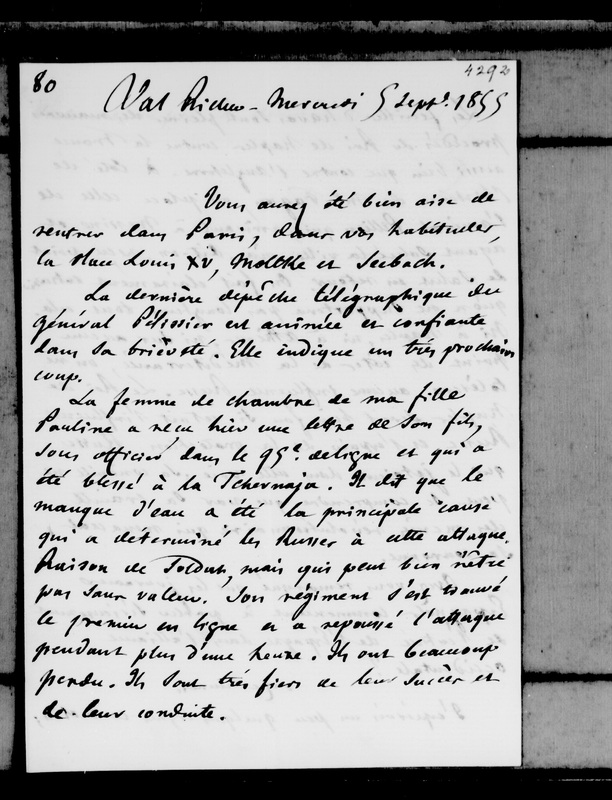 80
4292
Val Richer - Mercredi 5 Sept. 1855
Vous aurez été bien aise de
rentrer dans Paris, dans vos habitudes,
la place Louis XV, Moltke et Seebach.
La dernière dépêche télégraphique du
général Pélissier est animée et confiante
dans sa brièveté. Elle indique un très prochain
coup.
La femme de chambre de ma fille
Pauline a reçu hier une lettre de son fils,
sous officier dans le 95e de ligne et qui a
été blessé à la Tchernaja. Il dit que le
manque d'eau a été la principale cause
qui a déterminé les Russes à cette attaque.
Raison de Soldat, mais qui peut bien n'être
pas sans valeur. Son régiment s'est trouvé
le premier en ligne et a repoussé l'attaque
pendant plus d'une heure. Ils ont beaucoup
perdu. Ils sont très fiers de leur succès et
de leur conduite.